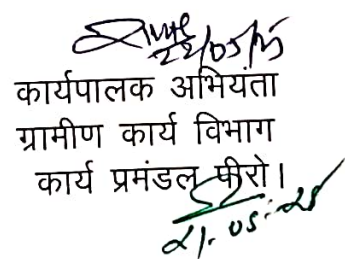 22/05/25
कार्यपालक अभियंता
ग्रामीण कार्य विभाग
कार्य प्रमंडल, पीरो।
21.05.25